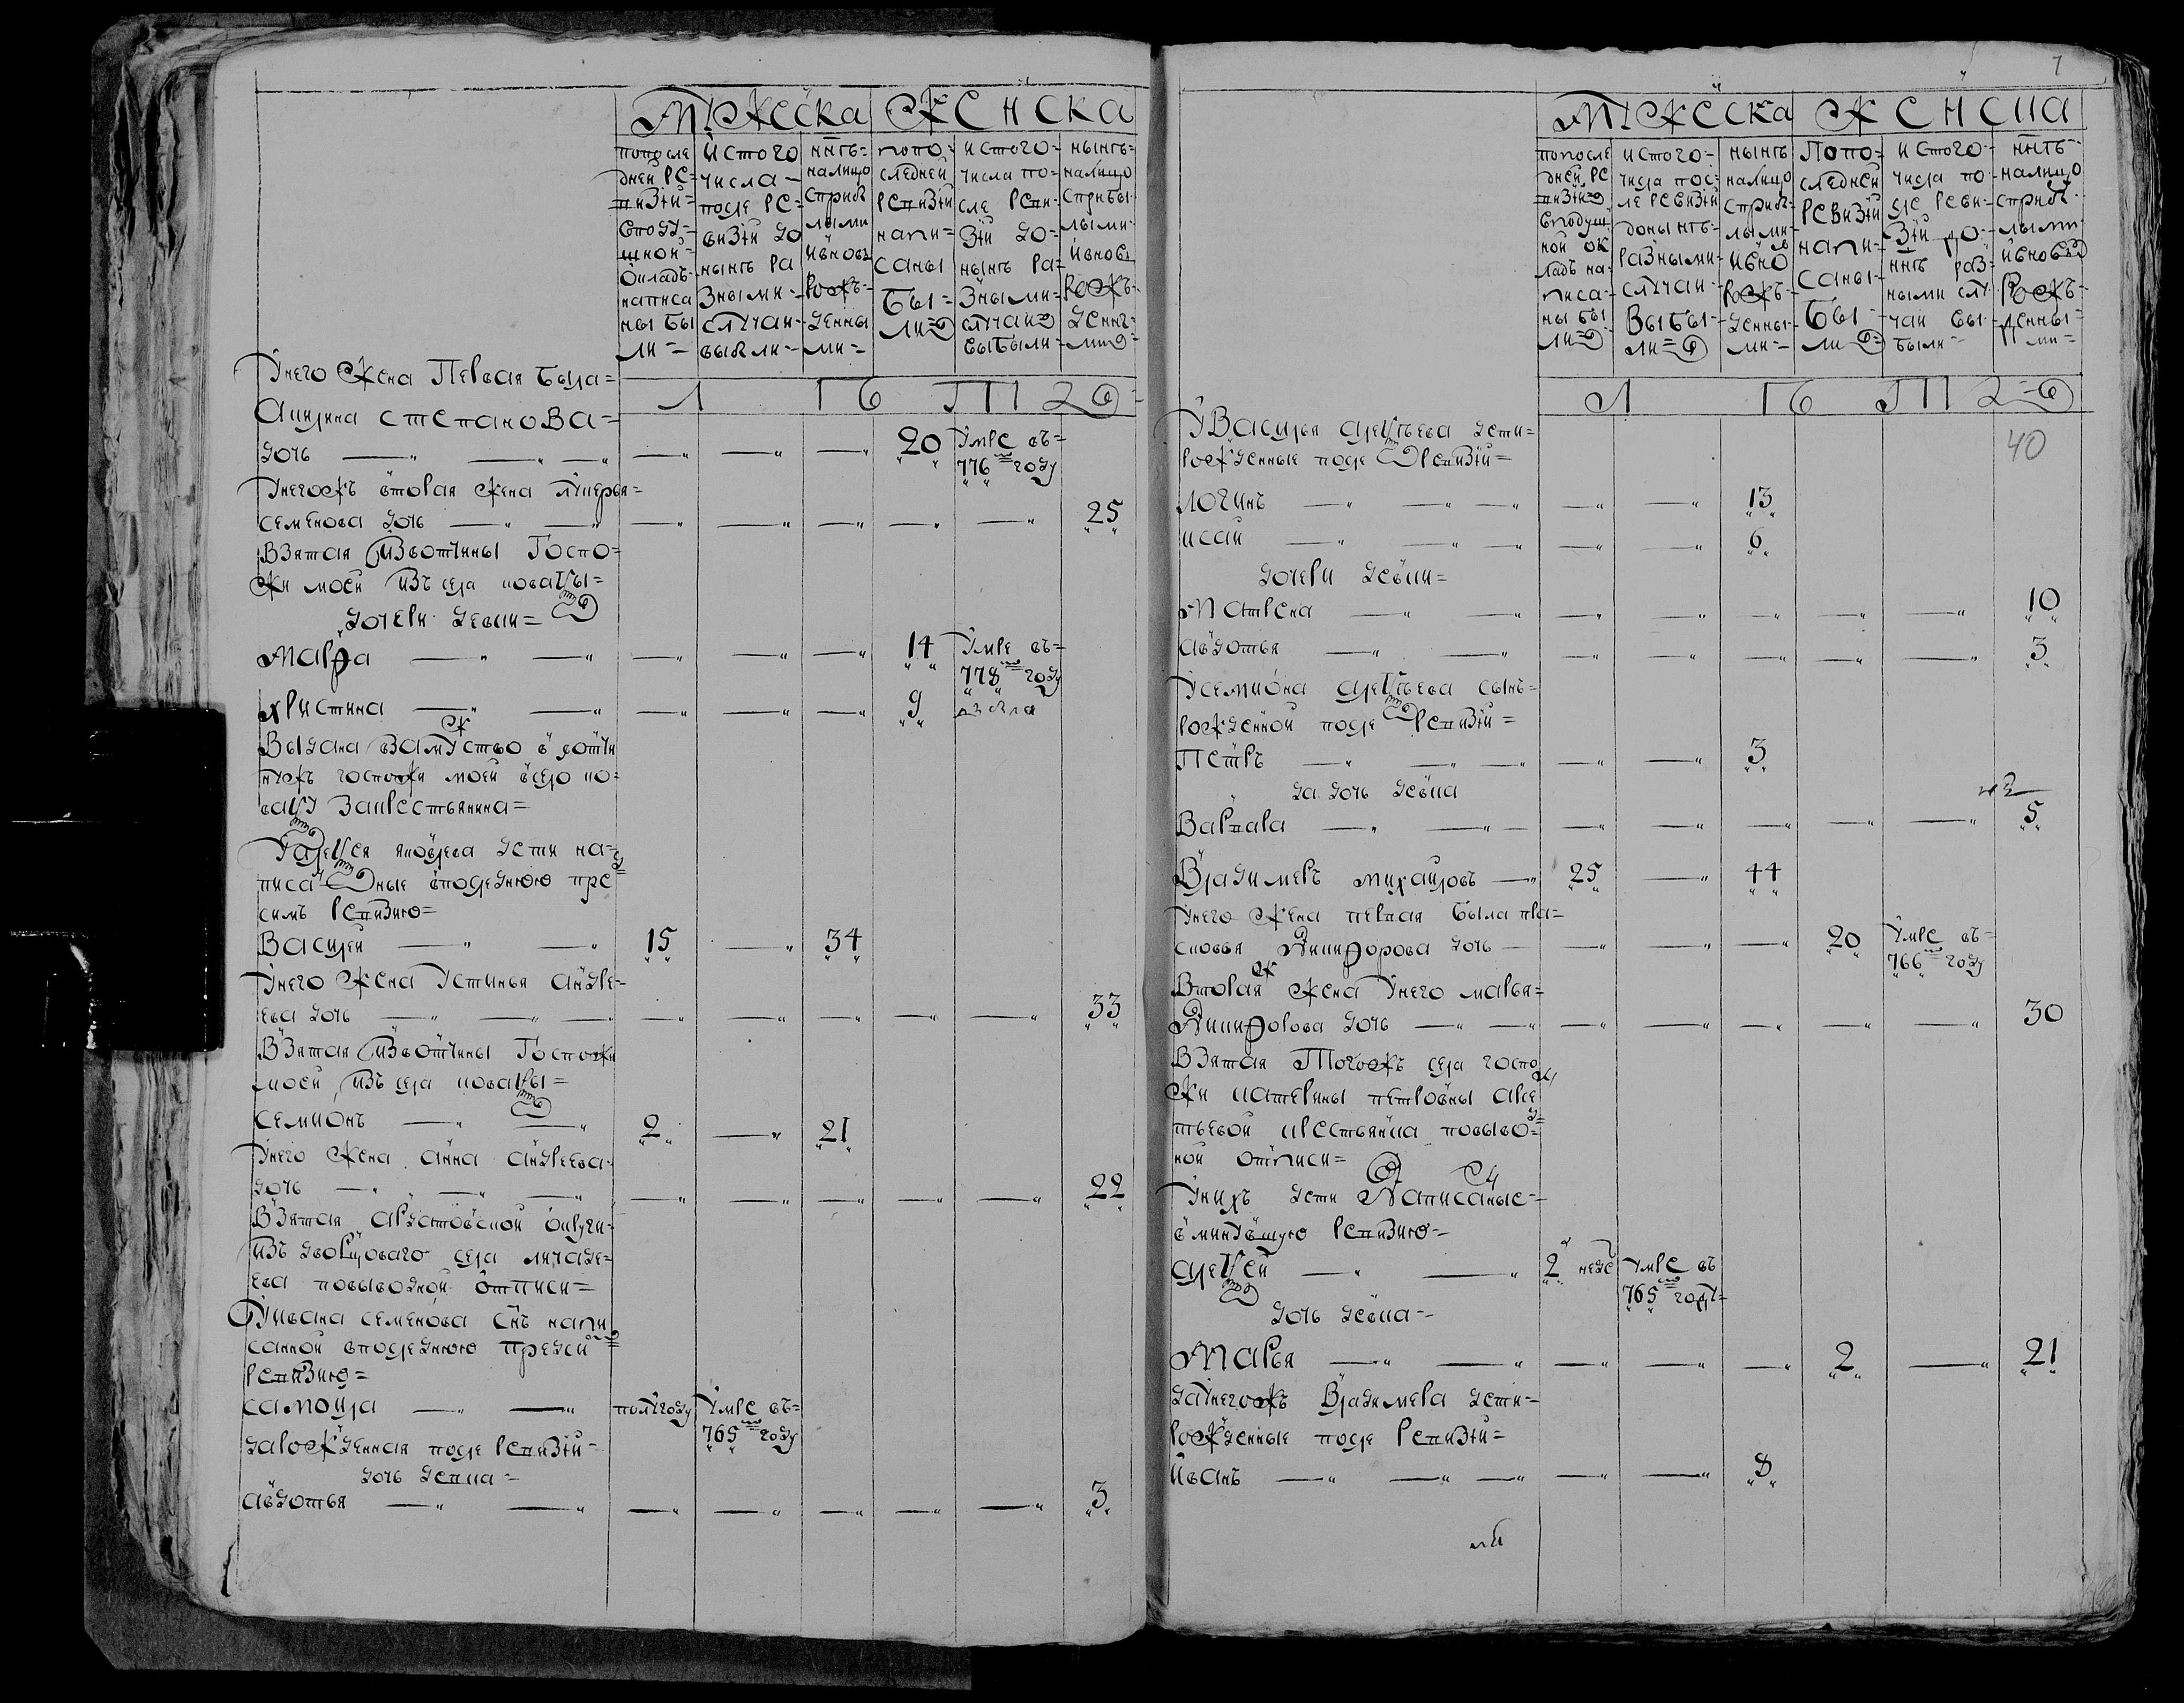 Мужеска Женска
попосле
дней ре-
визии-
вподу-
шной-
окладъ-
написа
ны бы
ли-
Истого
числа-
после ре-
визии до
нынѣ ра
зными-
случаи-
выбыли-
ннѣ-
налицо
сприбы
лыми
ивновь
рожъ-
денны
ми-
попо-
следней
ревизии
напи-
саны
бы-
ли
истого-
числа по-
сле реви-
зии до-
нынѣ ра-
зными-
случаи
выбыли-
нынѣ-
налицо
сприбы-
лыми-
ивновь
рожъ-
денны-
ми
Л Ѣ Т
Унего жена первая была-
Акилина степанова-
дочь 20 Умре въ-
776м году
Унегожъ вторая жена лукерья-
семенова дочь 25
Взятая извотчины Госпо-
жи моей изъ села
дочери девки-
Марфа 14 Умре въ-
778м году
христина 9
Выдана взамужство ввотчи
нужъ госпожи моей всело
закрестьянина-
Уалексея яковлева дети на-
писанные впоследнюю пре
симъ ревизию-
Василей 15 34
Унего жена Устинья андре-
ева дочь 33
Взятая извотчины Госпожи
моей изъ села
семионъ 2 21
Унего жена анна андреева
дочь 22
Взятая арзамовской округи-
изъ дворцоваго села личаде-
ева повыводной отписи-
Уивана семенова снъ напи
санной впоследнюю предъси
ревизию-
самоила полугоду Умре въ-
765м году
дарожденная после ревизии-
дочь девка-
авдотья 3
7
Мужеска Женска
попосле
дней ре
визии
вподуш
ной ок
ладъ на-
писа-
ны бы
ли
истого-
числа пос-
ле ревизии
донынѣ-
разными-
случаи-
выбы-
ли-
нынѣ
налицо
сприбы-
лыми-
ивно
рожъ-
денны-
ми-
Попо-
следней
ревизии
напи-
саны-
бы-
ли
истого-
числа по-
сле реви-
зии до-
ннѣ раз-
ными слу-
чаи вы-
были-
ннѣ-
налицо
сприбы-
лыми
ивновь
рожъ-
денны-
ми-
Л Ѣ Т
40
Увасилья алексѣева дети-
рожденные после ревизии-
логинъ 13
исаи 6
дочери девки-
Матрена 10
авдотья 3
Усемиона алексѣева сынъ-
рожденной после ревизии-
Петръ 3
да дочь девка
Варвара 5
Владимеръ михаиловъ 25 44
Унего жена первая была пра-
сковья никифорова дочь 20 Умре въ-
766м году
Вторая жена Унего марья-
никифорова дочь 30
Взятая Тогожъ села госпо
жи катерины петровны
крестьянка повыво-
ной отписи-
Унихъ дети написаные-
вминувшую ревизию-
алексей 2 неде Умре въ
765м году-
дочь девка-
Марья 2 21
даунегожъ Владимера дети-
рожденные после ревизии-
иванъ 8